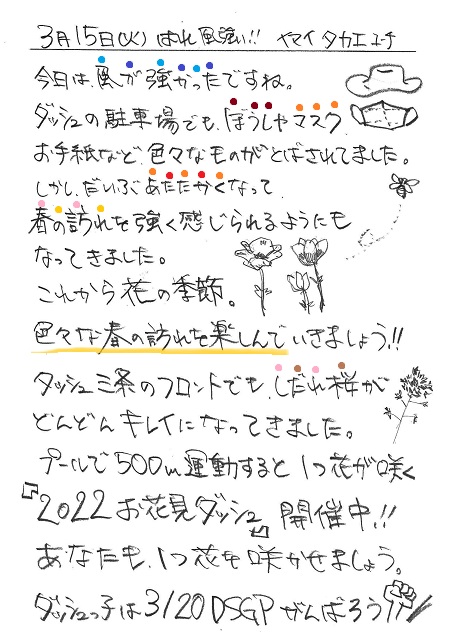 3月15日(火) はれ 風強い!! ヤマイ タカユキ
今日は、風が強かったですね。
ダッシュの駐車場でも、ぼうしやマスク
お手紙など、色々なものがとばされてました。
しかし、だいぶあたたかくなって
春の訪れを強く感じられるようにも
なってきました。
これから花の季節。
色々な春の訪れを楽しんでいきましょう!!
ダッシュ三条のフロントでも、しだれ桜が
どんどんキレイになってきました。
プールで500m運動すると1つ花が咲く
『2022お花見ダッシュ』開催中!!
あなたも、1つ花を咲かせましょう。
ダッシュっ子は3/20 DSGPがんばろう!!